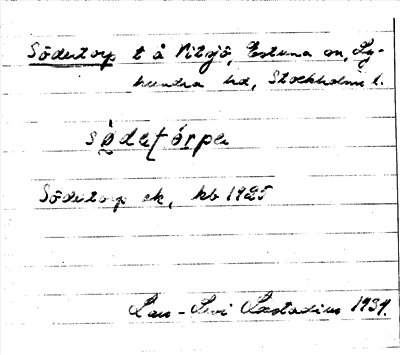 Södertorp t å Vitsjö, Estuna sn, Ly-
hundra hd, Stockholms l.
södaṭórpa
Södertorp ek, kb 1925
Lars-Levi Læstadius 1934.